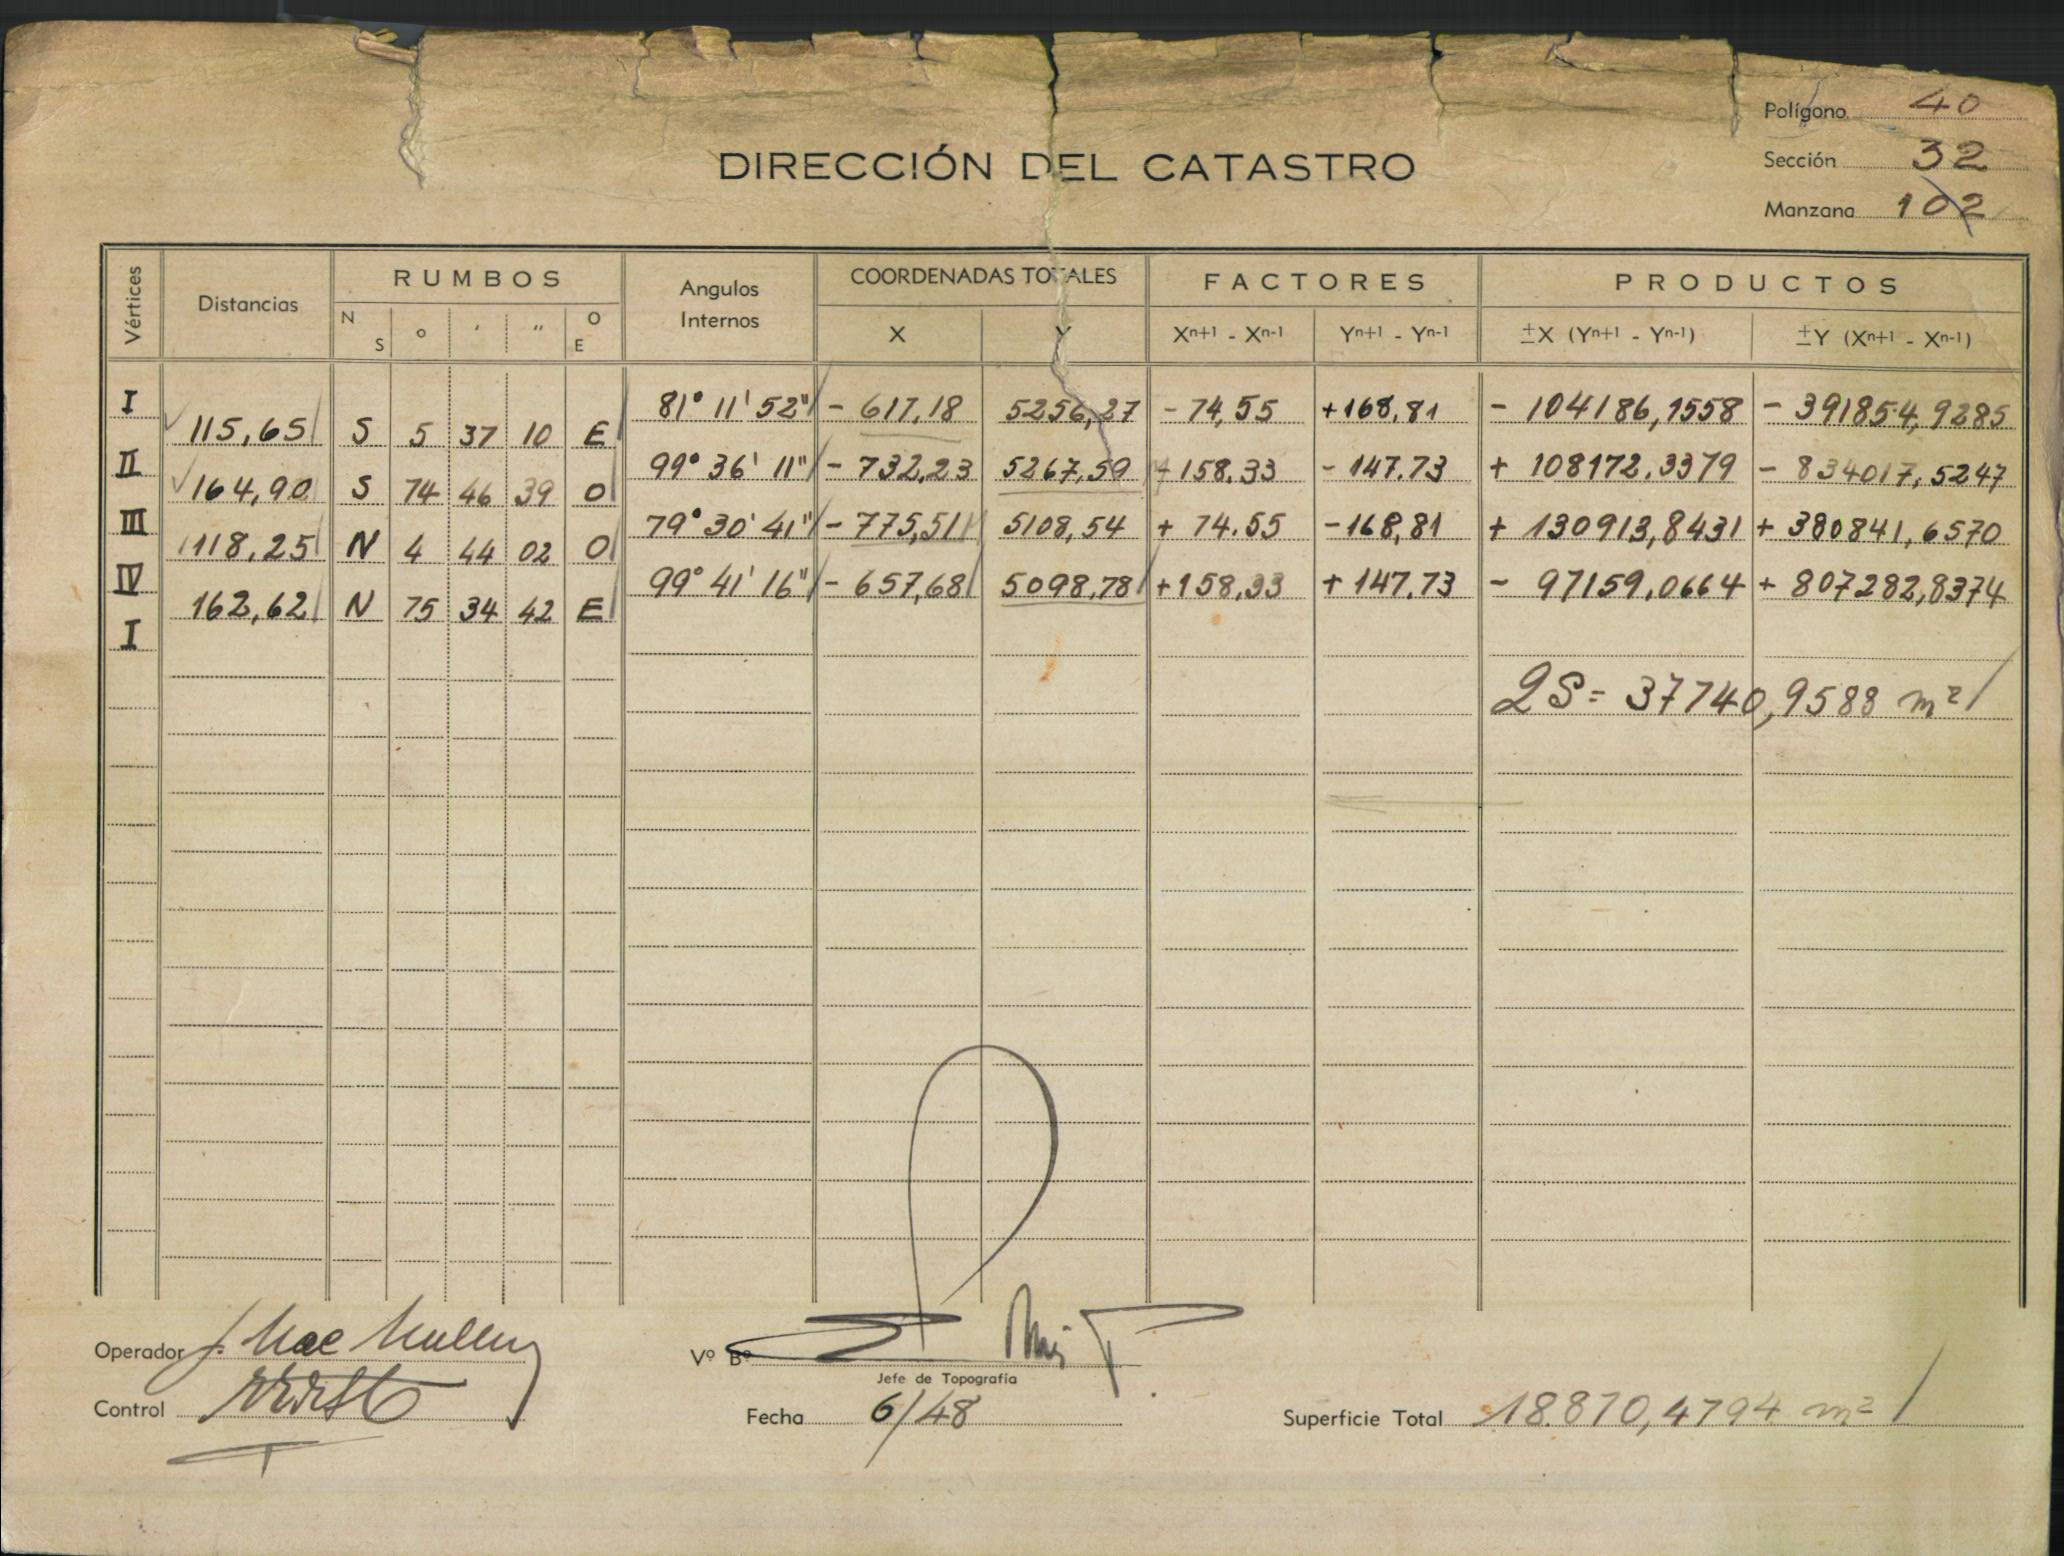 Polígono 40
Sección 32
Manzana 102
DIRECCIÓN DEL CATASTRO
Vértices Distancias RUMBOS Angulos Internos COORDENADAS TOTALES FACTORES PRODUCTOS
N S o ' " O E X Y Xn+1 - Xn-1 Yn+1 - Yn-1 ±X (Yn+1 - Yn-1) ±Y (Xn+1 - Xn-1)
I 81° 11' 52" - 617,18 5256,27 - 74,55 +168,81 - 104186,1558 - 391854,9285
115,65 S 5 37 10 E
II 99° 36' 11" - 732,23 5267,59 +158.33 - 147.73 + 108172.3379 - 834017,5247
164,90 S 74 46 39 O
III 79° 30' 41" - 775,51 5108,54 + 74.55 -168,81 + 130913,8431 + 380841,6570
118,25 N 4 44 02 O
IV 99° 41' 16" - 657,68 5098,78 +158,33 + 147.73 - 97159,0664 + 807282,8374
162,62 N 75 34 42 E
I
2S= 37740,9588 m²
Operador J. Mac Mullen
Vº Bº
Jefe de Topografía
Control
Fecha 6/48
Superficie Total 18.870,4794 m²